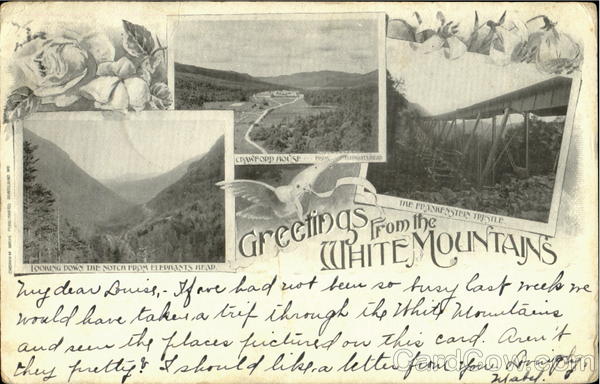 CRAWFORD HOUSE FROM ELEPHANTS HEAD.
THE FRANKENSTEIN TRESTLE.
LOOKING DOWN THE NOTCH FROM ELEPHANTS HEAD.
Greetings from the
WHITE MOUNTAINS
My dear Louise,- If we had not been so busy last week we
would have taken a trip through the White Mountains
and seen the places pictured on this card. Aren't
they pretty? I should like a letter from you
Mabel.
CardCow.com